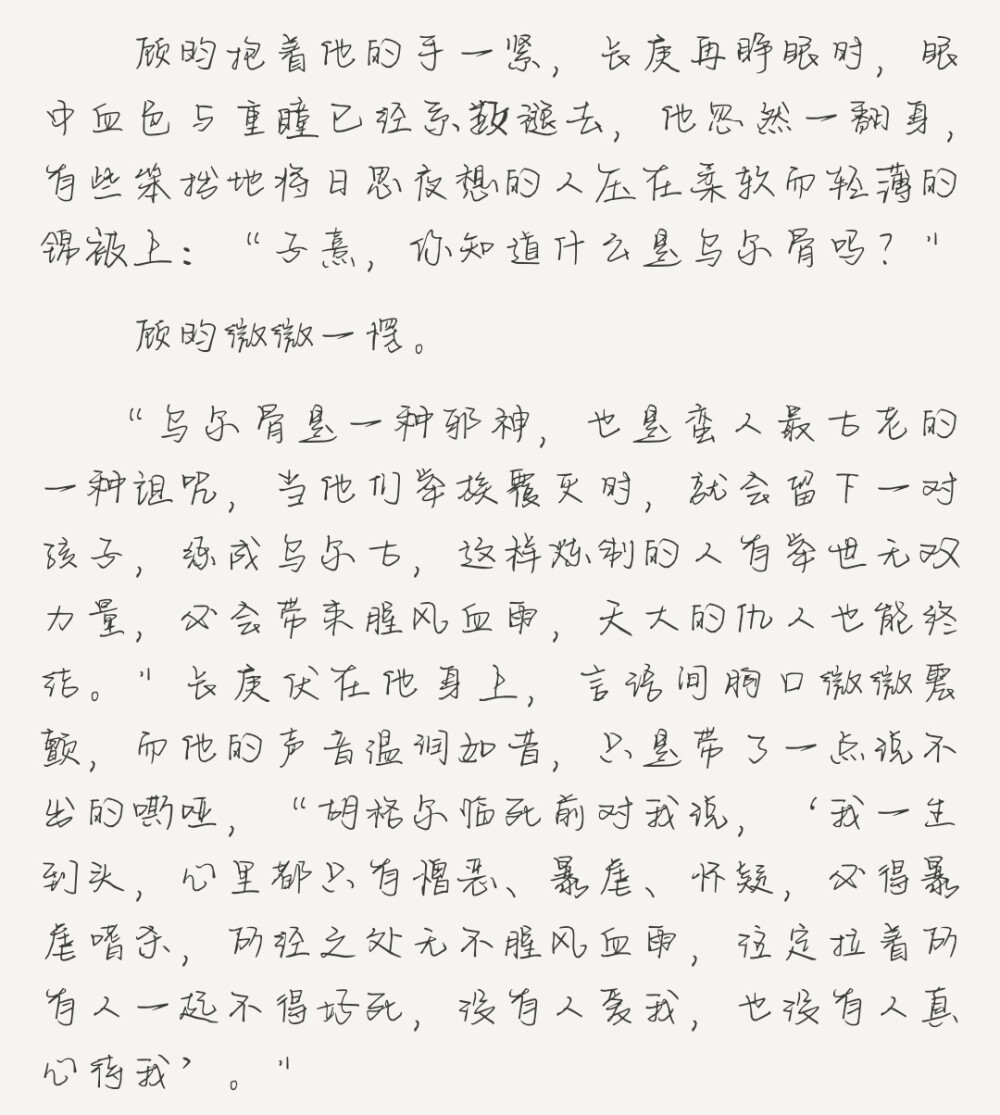 顾昀抱着他的手一紧，长庚再睁眼时，眼
中血色与重瞳已经系数褪去，他忽然一翻身，
有些笨拙地将日思夜想的人压在柔软而轻薄的
锦被上：“子熹，你知道什么是乌尔骨吗？”
顾昀微微一愣。
“乌尔骨是一种邪神，也是蛮人最古老的
一种诅咒，当他们举族覆灭时，就会留下一对
孩子，练成乌尔古，这样炼制的人有举世无双
力量，必会带来腥风血雨，天大的仇人也能终
结。”长庚伏在他身上，言语间胸口微微震
颤，而他的声音温润如昔，只是带了一点说不
出的嘶哑，“胡格尔临死前对我说，‘我一生
到头，心里都只有憎恶、暴虐、怀疑，必得暴
虐嗜杀，所经之处无不腥风血雨，注定拉着所
有人一起不得好死，没有人爱我，也没有人真
心待我’。”